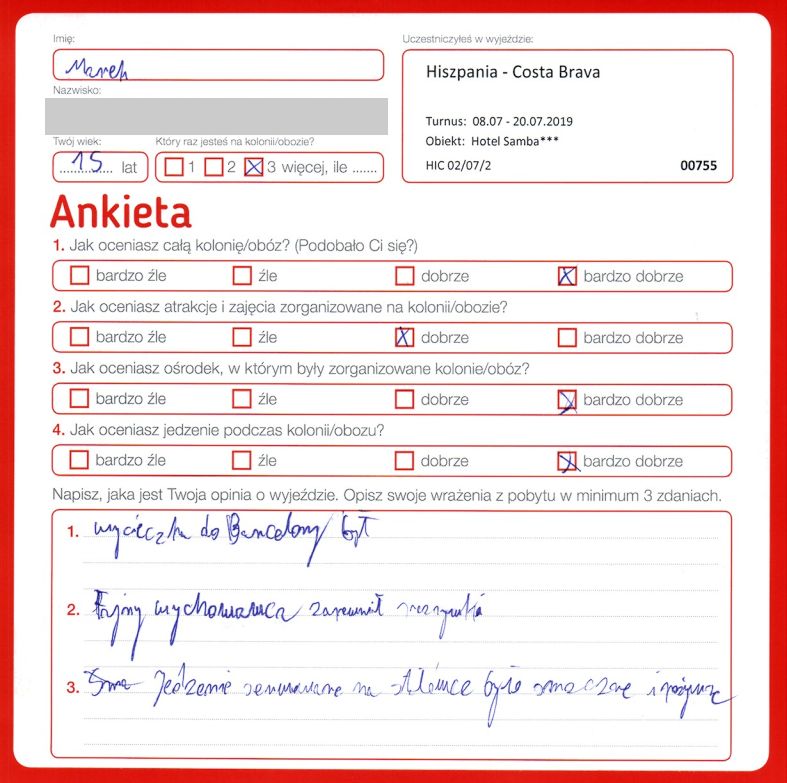 Imię:
Marek
Nazwisko:
Uczestniczyłeś w wyjeździe:
Hiszpania - Costa Brava
Turnus: 08.07 - 20.07.2019
Obiekt: Hotel Samba***
HIC 02/07/2 00755
Twój wiek: Który raz jesteś na kolonii/obozie?
15 lat 1 2 3 więcej, ile .......
Ankieta
1. Jak oceniasz całą kolonię/obóz? (Podobało Ci się?)
bardzo źle źle dobrze bardzo dobrze
2. Jak oceniasz atrakcje i zajęcia zorganizowane na kolonii/obozie?
bardzo źle źle dobrze bardzo dobrze
3. Jak oceniasz ośrodek, w którym były zorganizowane kolonie/obóz?
bardzo źle źle dobrze bardzo dobrze
4. Jak oceniasz jedzenie podczas kolonii/obozu?
bardzo źle źle dobrze bardzo dobrze
Napisz, jaka jest Twoja opinia o wyjeździe. Opisz swoje wrażenia z pobytu w minimum 3 zdaniach.
1. wycieczka do Barcelony
2. Fajny wychowawca zapewnił
3. Jedzenie serwowane na stołówce było smaczne i